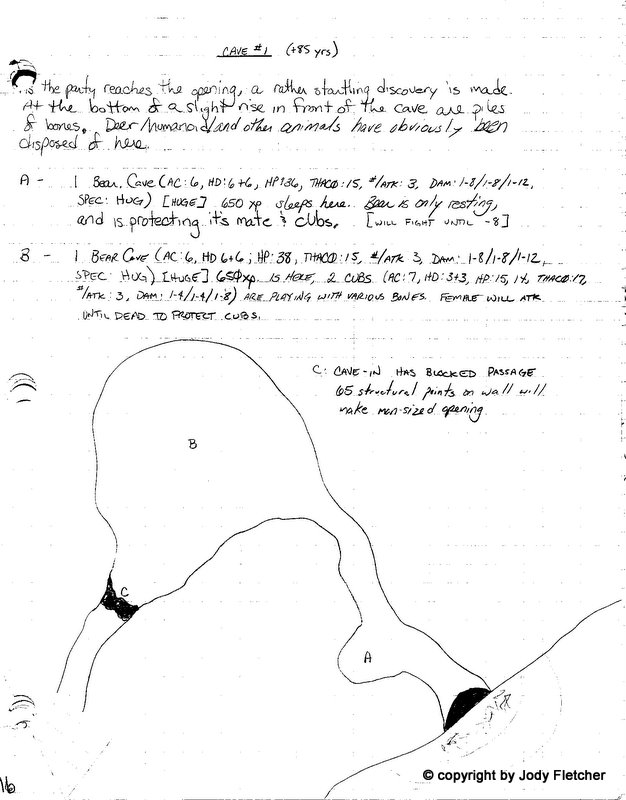 CAVE #1 (+85 yrs)
As the party reaches the opening, a rather startling discovery is made.
At the bottom of a slight rise in front of the cave are piles
of bones. Deer/humanoid/and other animals have obviously been
disposed of here.
A - 1 Bear, Cave (AC: 6, HD: 6+6, HP: 36, THACO: 15, #/ATK: 3, DAM: 1-8/1-8/1-12,
SPEC: HUG) [HUGE] 650 xp sleeps here. Bear is only resting,
and is protecting it's mate & cubs. [WILL FIGHT UNTIL -8]
B - 1 BEAR CAVE (AC: 6, HD 6+6; HP: 38, THACO: 15, #/ATK 3, DAM: 1-8/1-8/1-12,
SPEC: HUG) [HUGE] 650xp. IS HERE, 2 CUBS (AC: 7, HD: 3+3, HP: 15, 14, THACO: 17
#/ATK: 3, DAM: 1-4/1-4/1-8) ARE PLAYING WITH VARIOUS BONES. FEMALE WILL ATK
UNTIL DEAD TO PROTECT CUBS.
C: CAVE-IN HAS BLOCKED PASSAGE
65 structural points on wall will
make man-sized opening
B
C
A
16
© copyright by Jody Fletcher